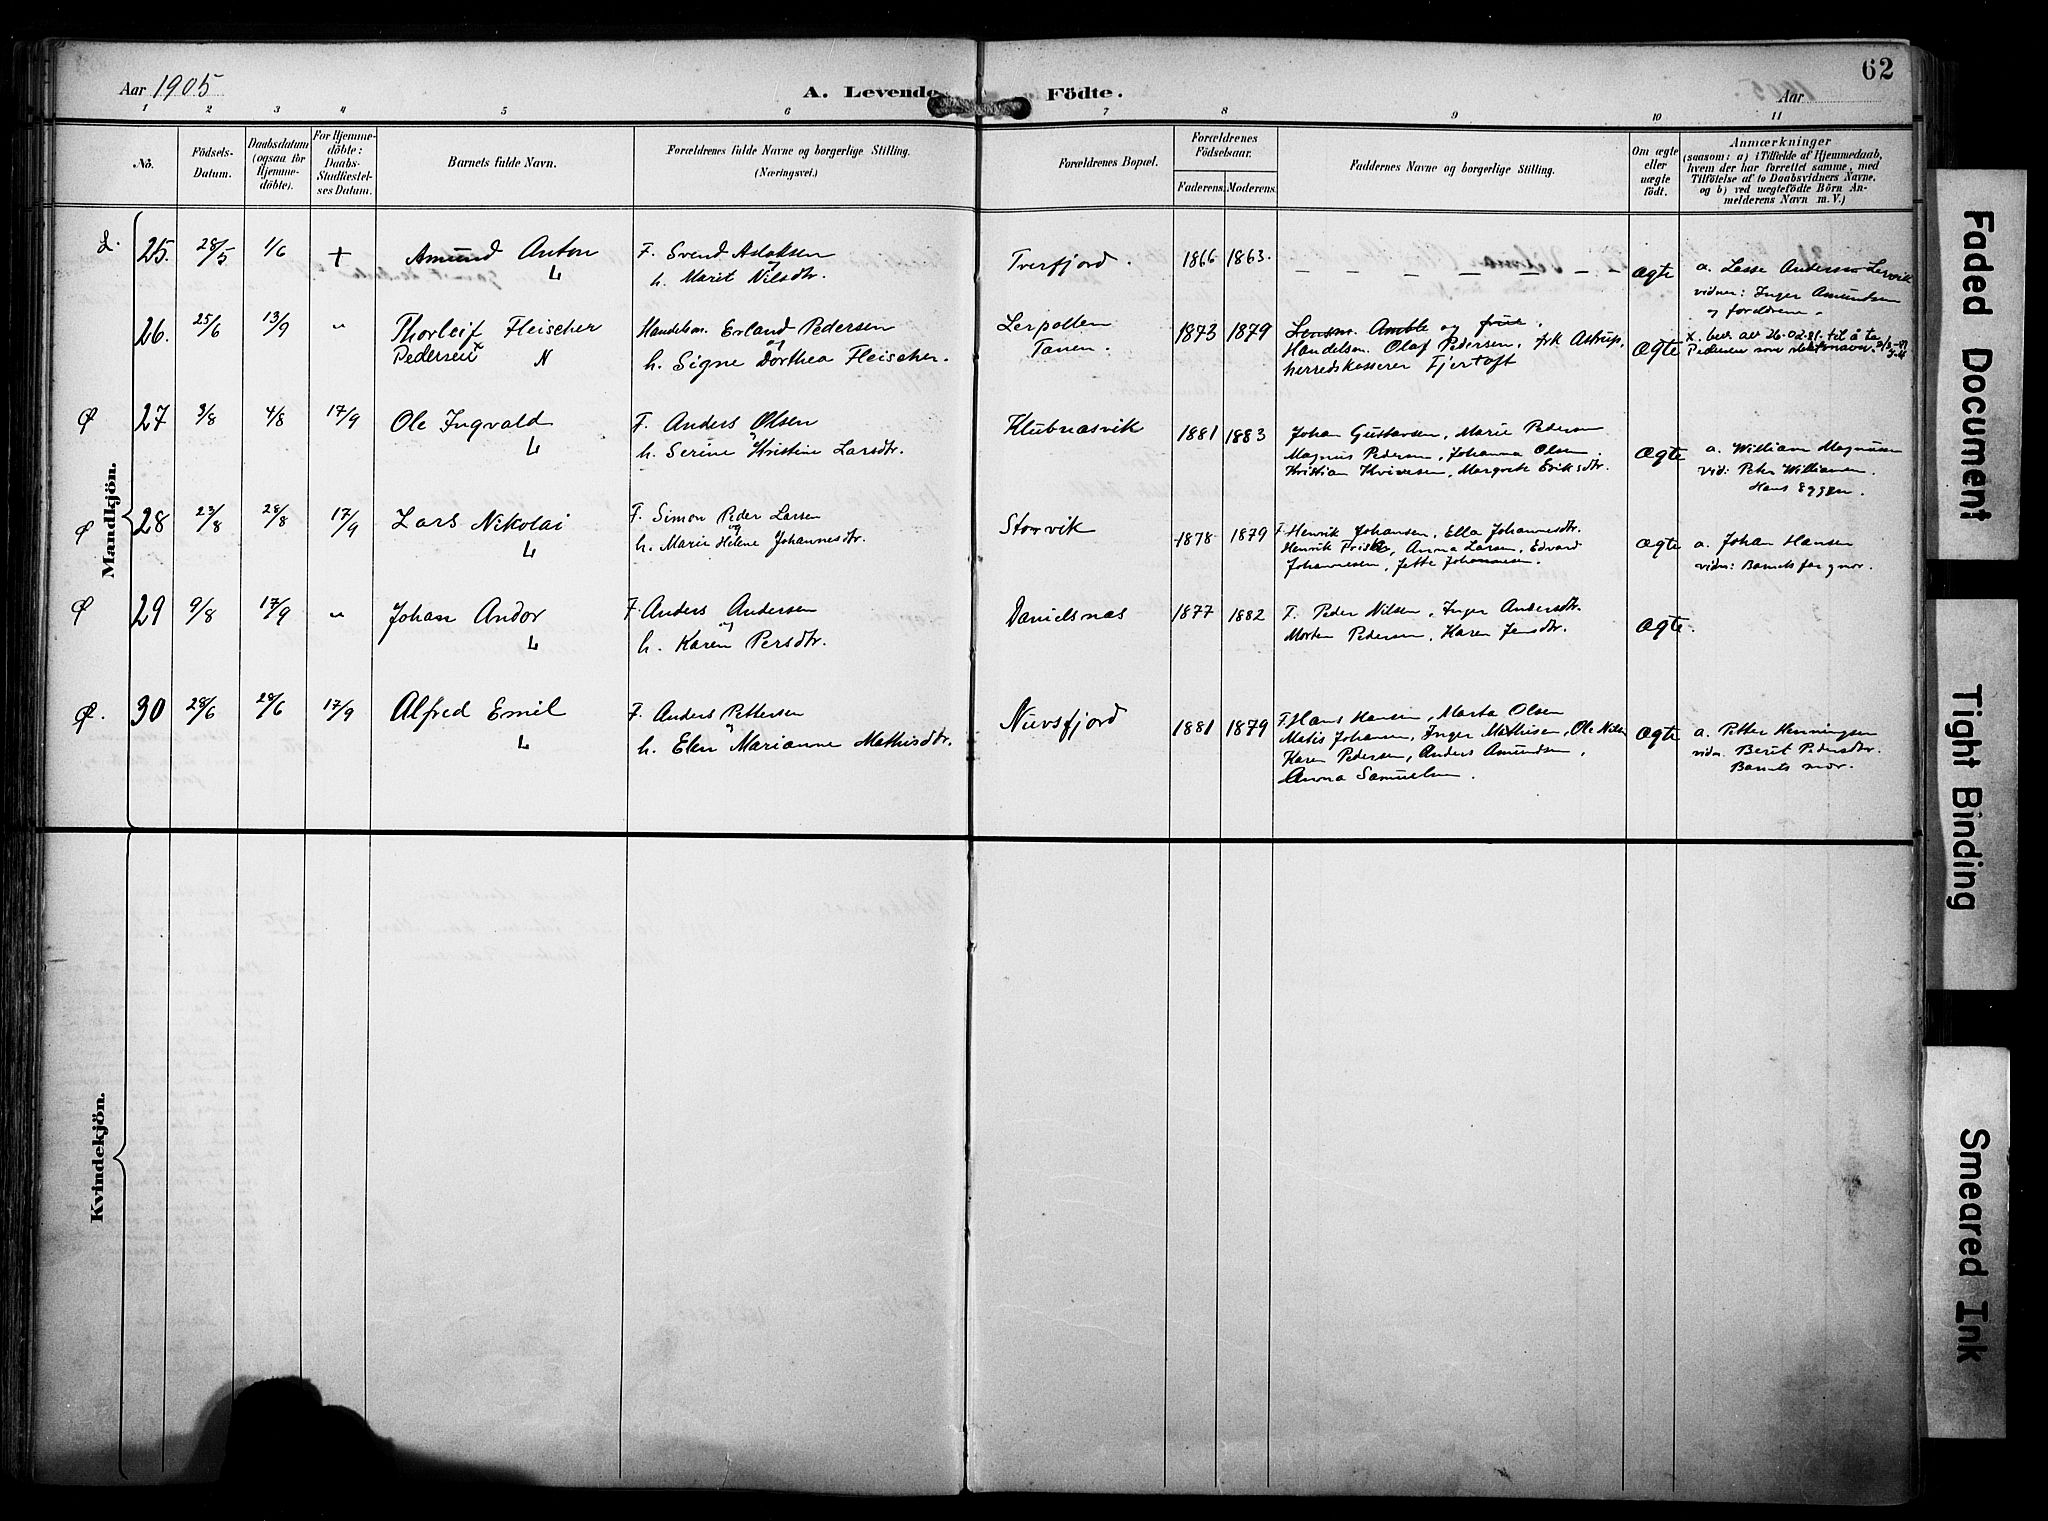 Aar 1905
A. Levende Födte.
Aar
62
1 2 3 4 5 6 7 8 9 10 11
No.
Födsels-Datum.
Daabsdatum (ogsaa for Hjemme-döbte).
For Hjemme-döbte: Daabs-Stadfæstel-ses Datum.
Barnets fulde Navn.
Forældrenes fulde Navne og borgerlige Stilling.
(Næringsvei.)
Forældrenes Bopæl.
Forældrenes Födselsaar.
Faderens. Moderens.
Faddernes Navne og borgerlige Stilling.
Om ægte eller uægte födt.
Anmærkninger
(saasom: a) i Tilfælde af Hjemmedaab,
hvem der har forrettet samme, med
Tilföielse af to Daabsvidners Navne,
og b) ved uægtefödte Börn An-
melderens Navn m. V.)
Mandkjön.
L. 25. 28/5 1/6 + Amund Anton L
F. Svend Aslaksen og
h. Marit Nilsdtr.
Tverfjord. 1866 1863. ægte
a. Lasse Anderss. Lervik
vidner: Inger Amundsen
og forældrene.
26. 25/6 13/9 " Thorleif Fleischer
Pedersen x N
Handelsm. Erland Pedersen og
h. Signe Dorthea Fleischer.
Lerpollen
Tanen. 1873 1879
Lensm. Amble og frue.
Handelsm. Olaf Pedersen, frk Astrup,
herredskasserer Fjertoft
ægte
x. bev. av 26.02.81. til å ta
Pedersen som slektsnavn.
Ø 27 3/8 4/8 17/9 Ole Ingvald L
F. Anders Olsen
h. Serine Kristine Larsdtr.
Klubnæsvik 1881 1883
Johan Gustavsen, Marie Pedersen
Magnus Pedersen, Johanna Olsen.
Kristian Kvivesen, Margrete Eriksdtr.
ægte
a. William Magnussen
vid: Peter Williamsen.
Hans Eggen.
Ø 28 23/8 28/8 17/9 Lars Nikolai L
F. Simon Peder Larsen
og
h. Marie Helene Johannesdtr.
Storvik 1878 1879
F. Henrik Johansen, Ella Johannesdtr.
Henrik Friske, Anna Larsen, Edvard
Johannesen, Jette Johannesen.
ægte
a. Johan Hansen
vidn: Barnets far og mor.
Ø 29 9/8 17/9 " Johan Andor L
F. Anders Andersen
og
h. Karen Persdtr.
Danielsnæs 1877 1882
F. Peder Nilsen, Inger Andersdtr.
Morten Pedersen, Karen Jensdtr.
ægte.
Ø. 30 28/6 28/6 17/9 Alfred Emil L
F. Anders Pettersen
h. Elen Marianne Mathisdtr.
Nuvsfjord 1881 1879
F. Hans Hansen, Marta Olsen
Matis Johansen, Inger Mathisen, Ole Nilsen
Karen Pedersen, Anders Amundsen,
Anna Samuelsen.
ægte
a. Petter Henningsen
vidn. Berit Pedersdtr.
Barnets mor.
Kvindekjön.
Faded Document
Tight Binding
Smeared Ink